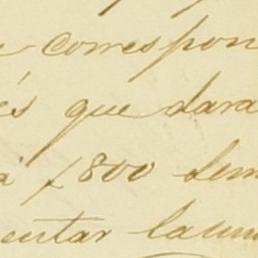 e correspon
és que dara
á £800 sem
entar lacun